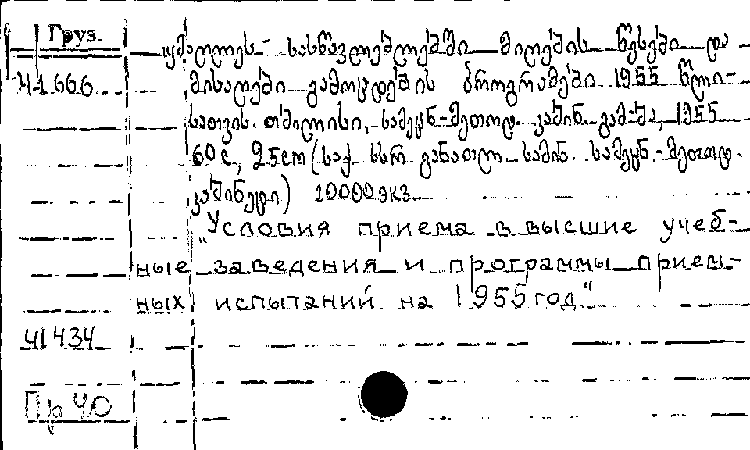 Груз.
უმაღლეს სასწავლებლებში მიღების წესები და
41666
მისაღები გამოცდების პროგრამები 1955 წლი-
სათვის. თბილისი, სამეცნ-მეთოდ. კაბინ. გამ-ბა, 1955
60 c, 25 cm (საქ. სსრ განათლ. სამინ. სამეცნ.-მეთოდ.
კაბინეტი) 10000 экз.
"Условия приема в высшие учеб-
ные заведения и программы прием-
ных испытаний на 1955 год"
41434
Пр 40